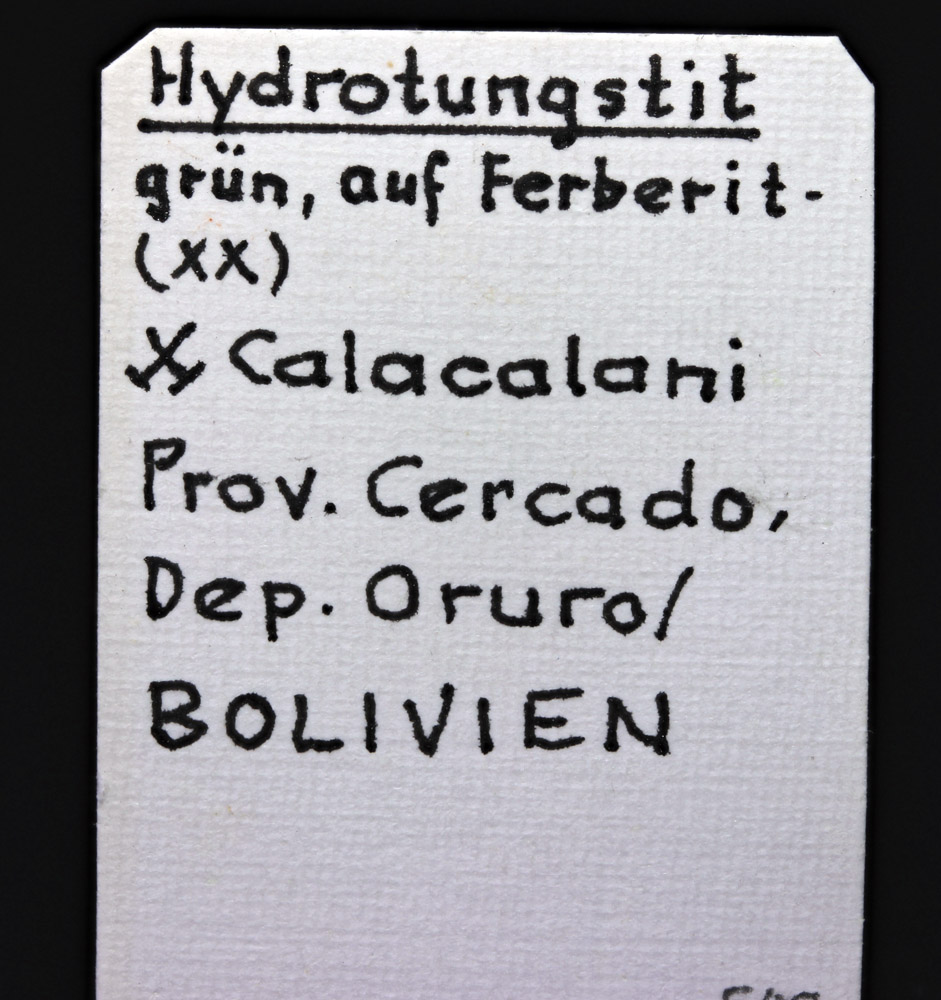 Hydrotungstit
grün, auf Ferberit-
(xx)
⚒ Calacalani
Prov. Cercado,
Dep. Oruro/
BOLIVIEN